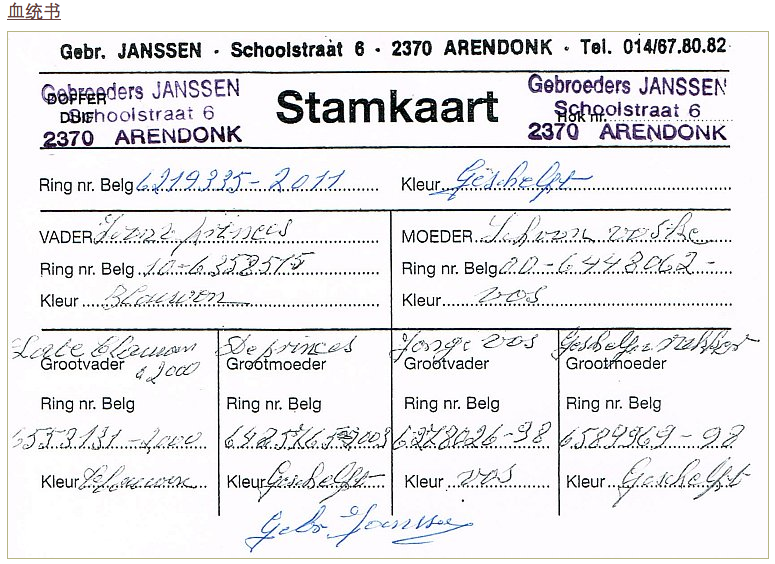 血统书
Gebr. JANSSEN · Schoolstraat 6 · 2370 ARENDONK · Tel. 014/67.80.82
Gebroeders JANSSEN
Schoolstraat 6
2370 ARENDONK
DOFFER
DUIF
Stamkaart
Gebroeders JANSSEN
Schoolstraat 6
2370 ARENDONK
Hok nr.
Ring nr. Belg 6219335-2011 Kleur Geschelpt
VADER Zoon princes MOEDER Schoon voske
Ring nr. Belg 10-6358515 Ring nr. Belg 00-6448062-
Kleur Blauwen Kleur vos
Late blauwen De princes Jonge vos Geschelpt
Grootvader Grootmoeder Grootvader Grootmoeder
2000
Ring nr. Belg Ring nr. Belg Ring nr. Belg Ring nr. Belg
6553131-2000 6278026-98 6589969-98
Kleur Blauwen Kleur Geschelpt Kleur vos Kleur Geschelpt
Gebr Janssen